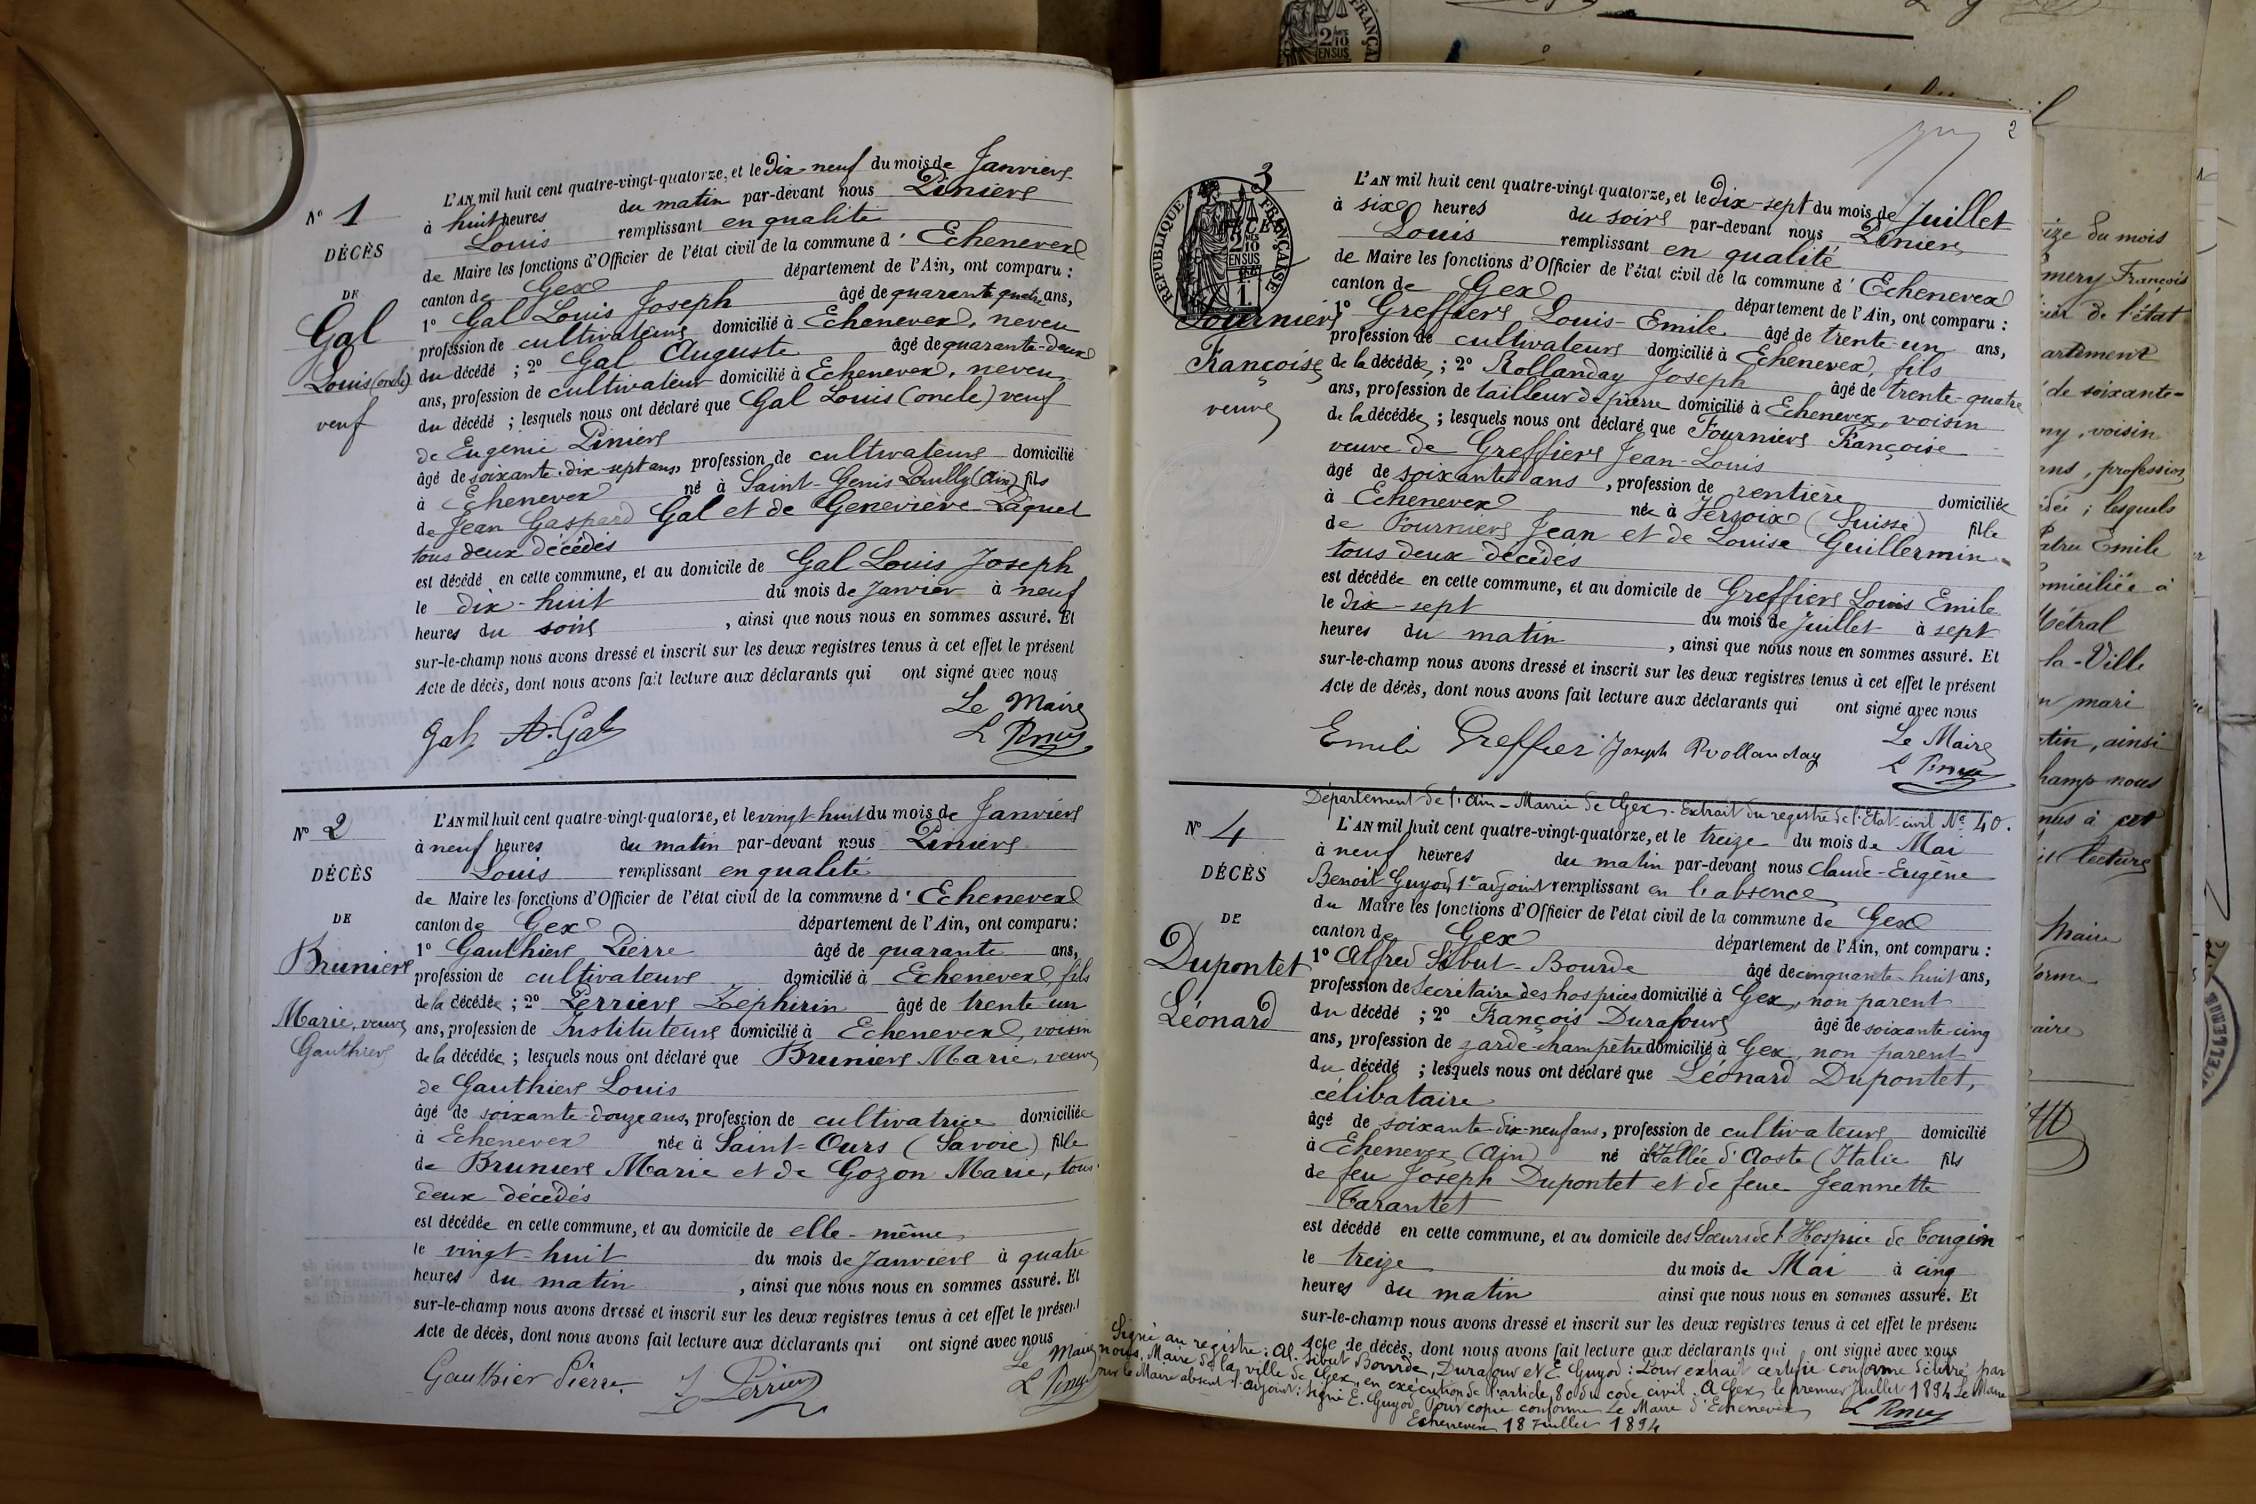 N° 1
DÉCÈS
DE
Gal
Louis (oncle)
veuf
L'AN mil huit cent quatre-vingt-quatorze, et le Dix-neuf du mois de Janvier
à huit heures du matin par-devant nous Pinier
Louis remplissant en qualité
de Maire les fonctions d'Officier de l'état civil de la commune d'Echenevex
canton de Gex département de l'Ain, ont comparu :
1° Gal Louis Joseph âgé de quarante quatre ans,
profession de cultivateur domicilié à Echenevex, neveu
du décédé ; 2° Gal Auguste âgé de quarante-deux
ans, profession de cultivateur domicilié à Echenevex, neveu
du décédé ; lesquels nous ont déclaré que Gal Louis (oncle) veuf
de Eugénie Pinier
âgé de soixante-dix-sept ans, profession de cultivateur domicilié
à Echenevex né à Saint-Genis Pouilly (Ain) fils
de Jean Gaspard Gal et de Geneviève
tous deux décédés
est décédé en cette commune, et au domicile de Gal Louis Joseph
le dix-huit du mois de Janvier à neuf
heures du soir, ainsi que nous nous en sommes assuré. Et
sur-le-champ nous avons dressé et inscrit sur les deux registres tenus à cet effet le présent
Acte de décès, dont nous avons fait lecture aux déclarants qui ont signé avec nous
Le Maire
Gal A. Gal
N° 2
DÉCÈS
DE
Brunier
Marie, veuve
Gauthier
L'AN mil huit cent quatre-vingt-quatorze, et le vingt-huit du mois de Janvier
à neuf heures du matin par-devant nous Pinier
Louis remplissant en qualité
de Maire les fonctions d'Officier de l'état civil de la commune d'Echenevex
canton de Gex département de l'Ain, ont comparu :
1° Gauthier Pierre âgé de quarante ans,
profession de cultivateur domicilié à Echenevex, fils
de la décédée ; 2° Perrier Zéphirin âgé de trente-un
ans, profession de Instituteur domicilié à Echenevex, voisin
de la décédée ; lesquels nous ont déclaré que Brunier Marie, veuve
de Gauthier Louis
âgé de soixante-douze ans, profession de cultivatrice domiciliée
à Echenevex née à Saint-Ours (Savoie) fille
de Brunier Marie et de Gozon Marie, tous
deux décédés
est décédée en cette commune, et au domicile de elle-même
le vingt-huit du mois de Janvier à quatre
heures du matin, ainsi que nous nous en sommes assuré. Et
sur-le-champ nous avons dressé et inscrit sur les deux registres tenus à cet effet le présent
Acte de décès, dont nous avons fait lecture aux déclarants qui ont signé avec nous
Le Maire
Gauthier Pierre. Z Perrier
2
3
RÉPUBLIQUE FRANÇAISE
2/10
EN SUS
Fournier
Françoise
veuve
L'AN mil huit cent quatre-vingt-quatorze, et le Dix-sept du mois de Juillet
à six heures du soir par-devant nous Pinier
Louis remplissant en qualité
de Maire les fonctions d'Officier de l'état civil de la commune d'Echenevex
canton de Gex département de l'Ain, ont comparu :
1° Greffier Louis-Emile âgé de trente-un ans,
profession de cultivateur domicilié à Echenevex, fils
de la décédée ; 2° Rollanday Joseph âgé de trente-quatre
ans, profession de tailleur de pierre domicilié à Echenevex, voisin
de la décédée ; lesquels nous ont déclaré que Fournier Françoise
veuve de Greffier Jean-Louis
âgé de soixante ans, profession de rentière domiciliée
à Echenevex née à Versoix (Suisse) fille
de Fournier Jean et de Louise Guillermin
tous deux décédés
est décédée en cette commune, et au domicile de Greffier Louis Emile
le dix-sept du mois de Juillet à sept
heures du matin, ainsi que nous nous en sommes assuré. Et
sur-le-champ nous avons dressé et inscrit sur les deux registres tenus à cet effet le présent
Acte de décès, dont nous avons fait lecture aux déclarants qui ont signé avec nous
Emile Greffier Joseph Rollanday Le Maire
Département de l'Ain - Mairie de Gex. Extrait du registre de l'Etat-civil N° 40.
N° 4
DÉCÈS
DE
Dupontet
Léonard
L'AN mil huit cent quatre-vingt-quatorze, et le treize du mois de Mai
à neuf heures du matin par-devant nous Claude-Eugène
Benoît Guyod, 1er adjoint remplissant en l'absence
du Maire les fonctions d'Officier de l'état civil de la commune de Gex
canton de Gex département de l'Ain, ont comparu :
1° Alfred Sibut-Bourde âgé de cinquante-huit ans,
profession de Secrétaire des hospices domicilié à Gex, non parent
du décédé ; 2° François Durafour âgé de soixante-cinq
ans, profession de garde-champêtre domicilié à Gex, non parent
du décédé ; lesquels nous ont déclaré que Léonard Dupontet,
célibataire
âgé de soixante-dix-neuf ans, profession de cultivateur domicilié
à Echenevex (Ain) né à Vallée d'Aoste (Italie fils
de feu Joseph Dupontet et de feue Jeannette
Tarantet
est décédé en cette commune, et au domicile des Sœurs de l'Hospice de Tougin
le treize du mois de Mai à cinq
heures du matin ainsi que nous nous en sommes assuré. Et
sur-le-champ nous avons dressé et inscrit sur les deux registres tenus à cet effet le présent
Acte de décès, dont nous avons fait lecture aux déclarants qui ont signé avec nous
Signé au registre : Al. Sibut Bourde, Durafour et E. Guyod : Pour extrait certifié conforme délivré par
nous, Maire de la ville de Gex, en exécution de l'article 80 du code civil. A Gex, le premier Juillet 1894 Le Maire
pour le Maire absent l'adjoint : signé E. Guyod Pour copie conforme Le Maire d'Echenevex
Echenevex 18 Juillet 1894
2/10
EN SUS
ize du mois
mery François
de l'état
artement
de soixante-
ny, voisin
ans, profession
; lesquels
Emile
domiciliée à
Métral
la-Ville
mari
tin, ainsi
champ nous
nus à cet
lecture
Maire